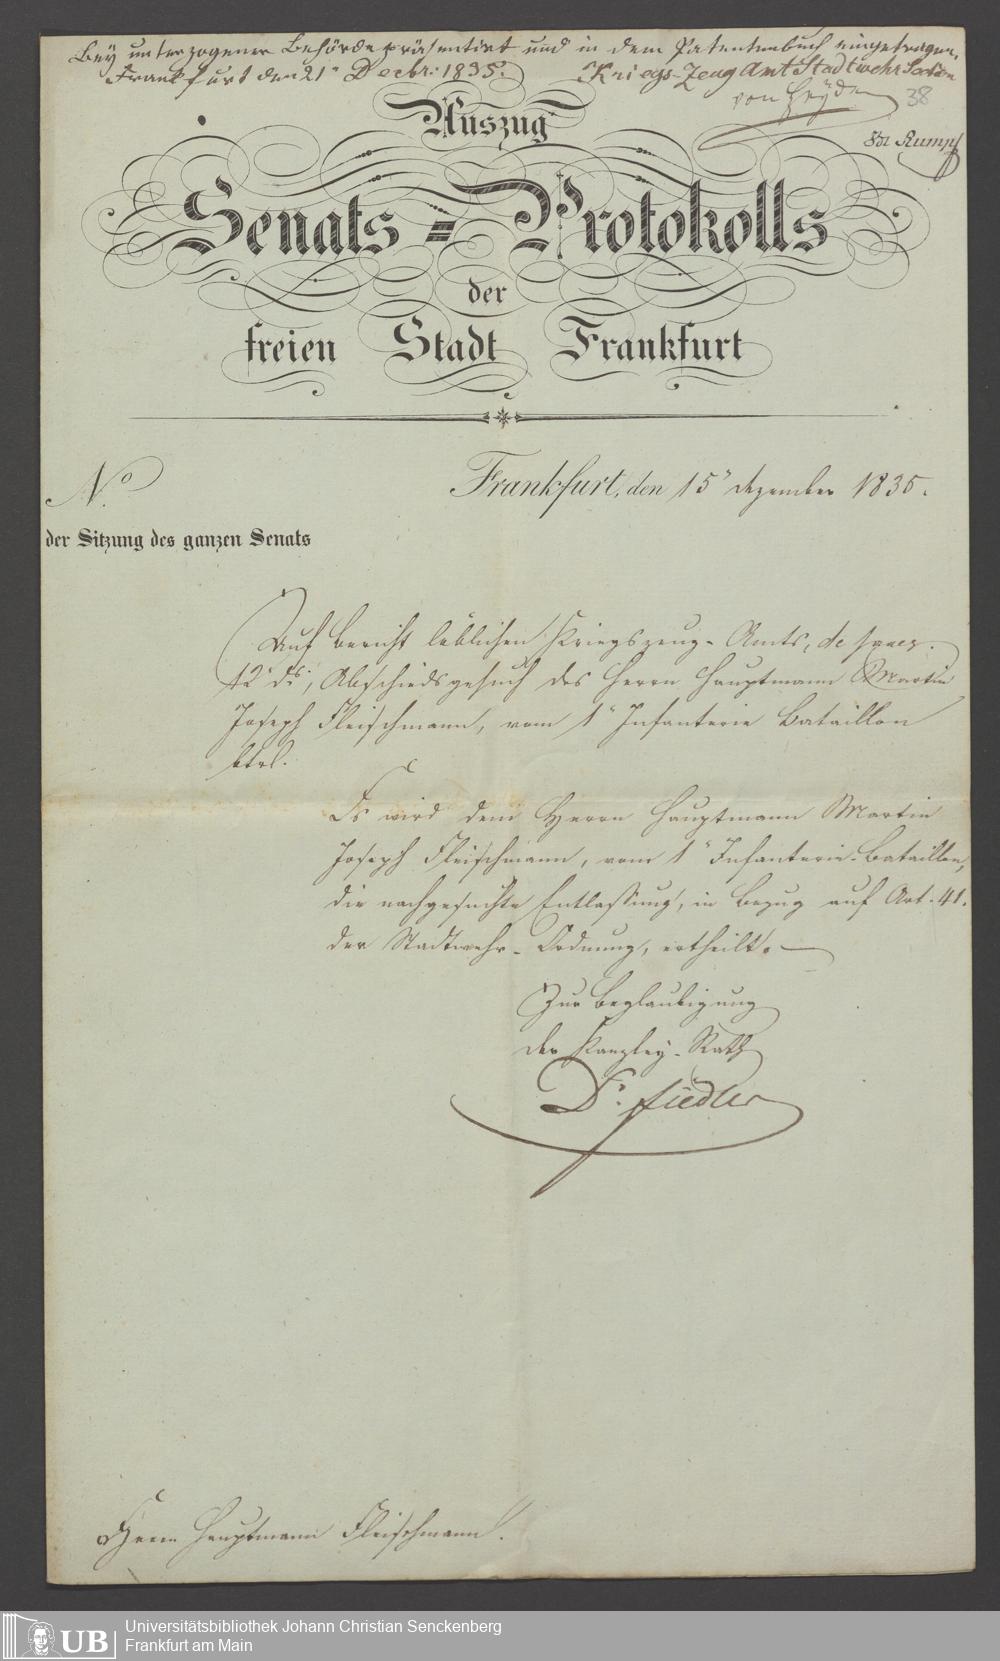 Bey unterzogener Behörde präsentirt und in dem Patentenbuch eingetragen,
Frankfurt den 21n Decbr: 1835.
Kriegs-Zeug Amt Stadtwehr Section
von Heyden
38
Rumpf
Auszug
Senats-Protokolls
der
freien Stadt Frankfurt
No.
Frankfurt, den 15n dezember 1835.
der Sitzung des ganzen Senats
Auf Bericht löblichen Kriegszeug-Amts, de praes.
12 ds:, Abschiedsgesuch des Herrn Hauptmann Martin
Joseph Fleischmann, vom 1n Infanterie Bataillon
btrl.
Es wird dem Herrn Hauptmann Martin
Joseph Fleischmann, vom 1n Infanterie-Bataillon,
die nachgesuchte Entlassung, in Bezug auf Art. 41.
der Stadtwehr-Ordnung, ertheilt.
Zur Beglaubigung
der Kanzley-Rath
Dr. Fiedler
Herrn Hauptmann Fleischmann.
UB
Universitätsbibliothek Johann Christian Senckenberg
Frankfurt am Main